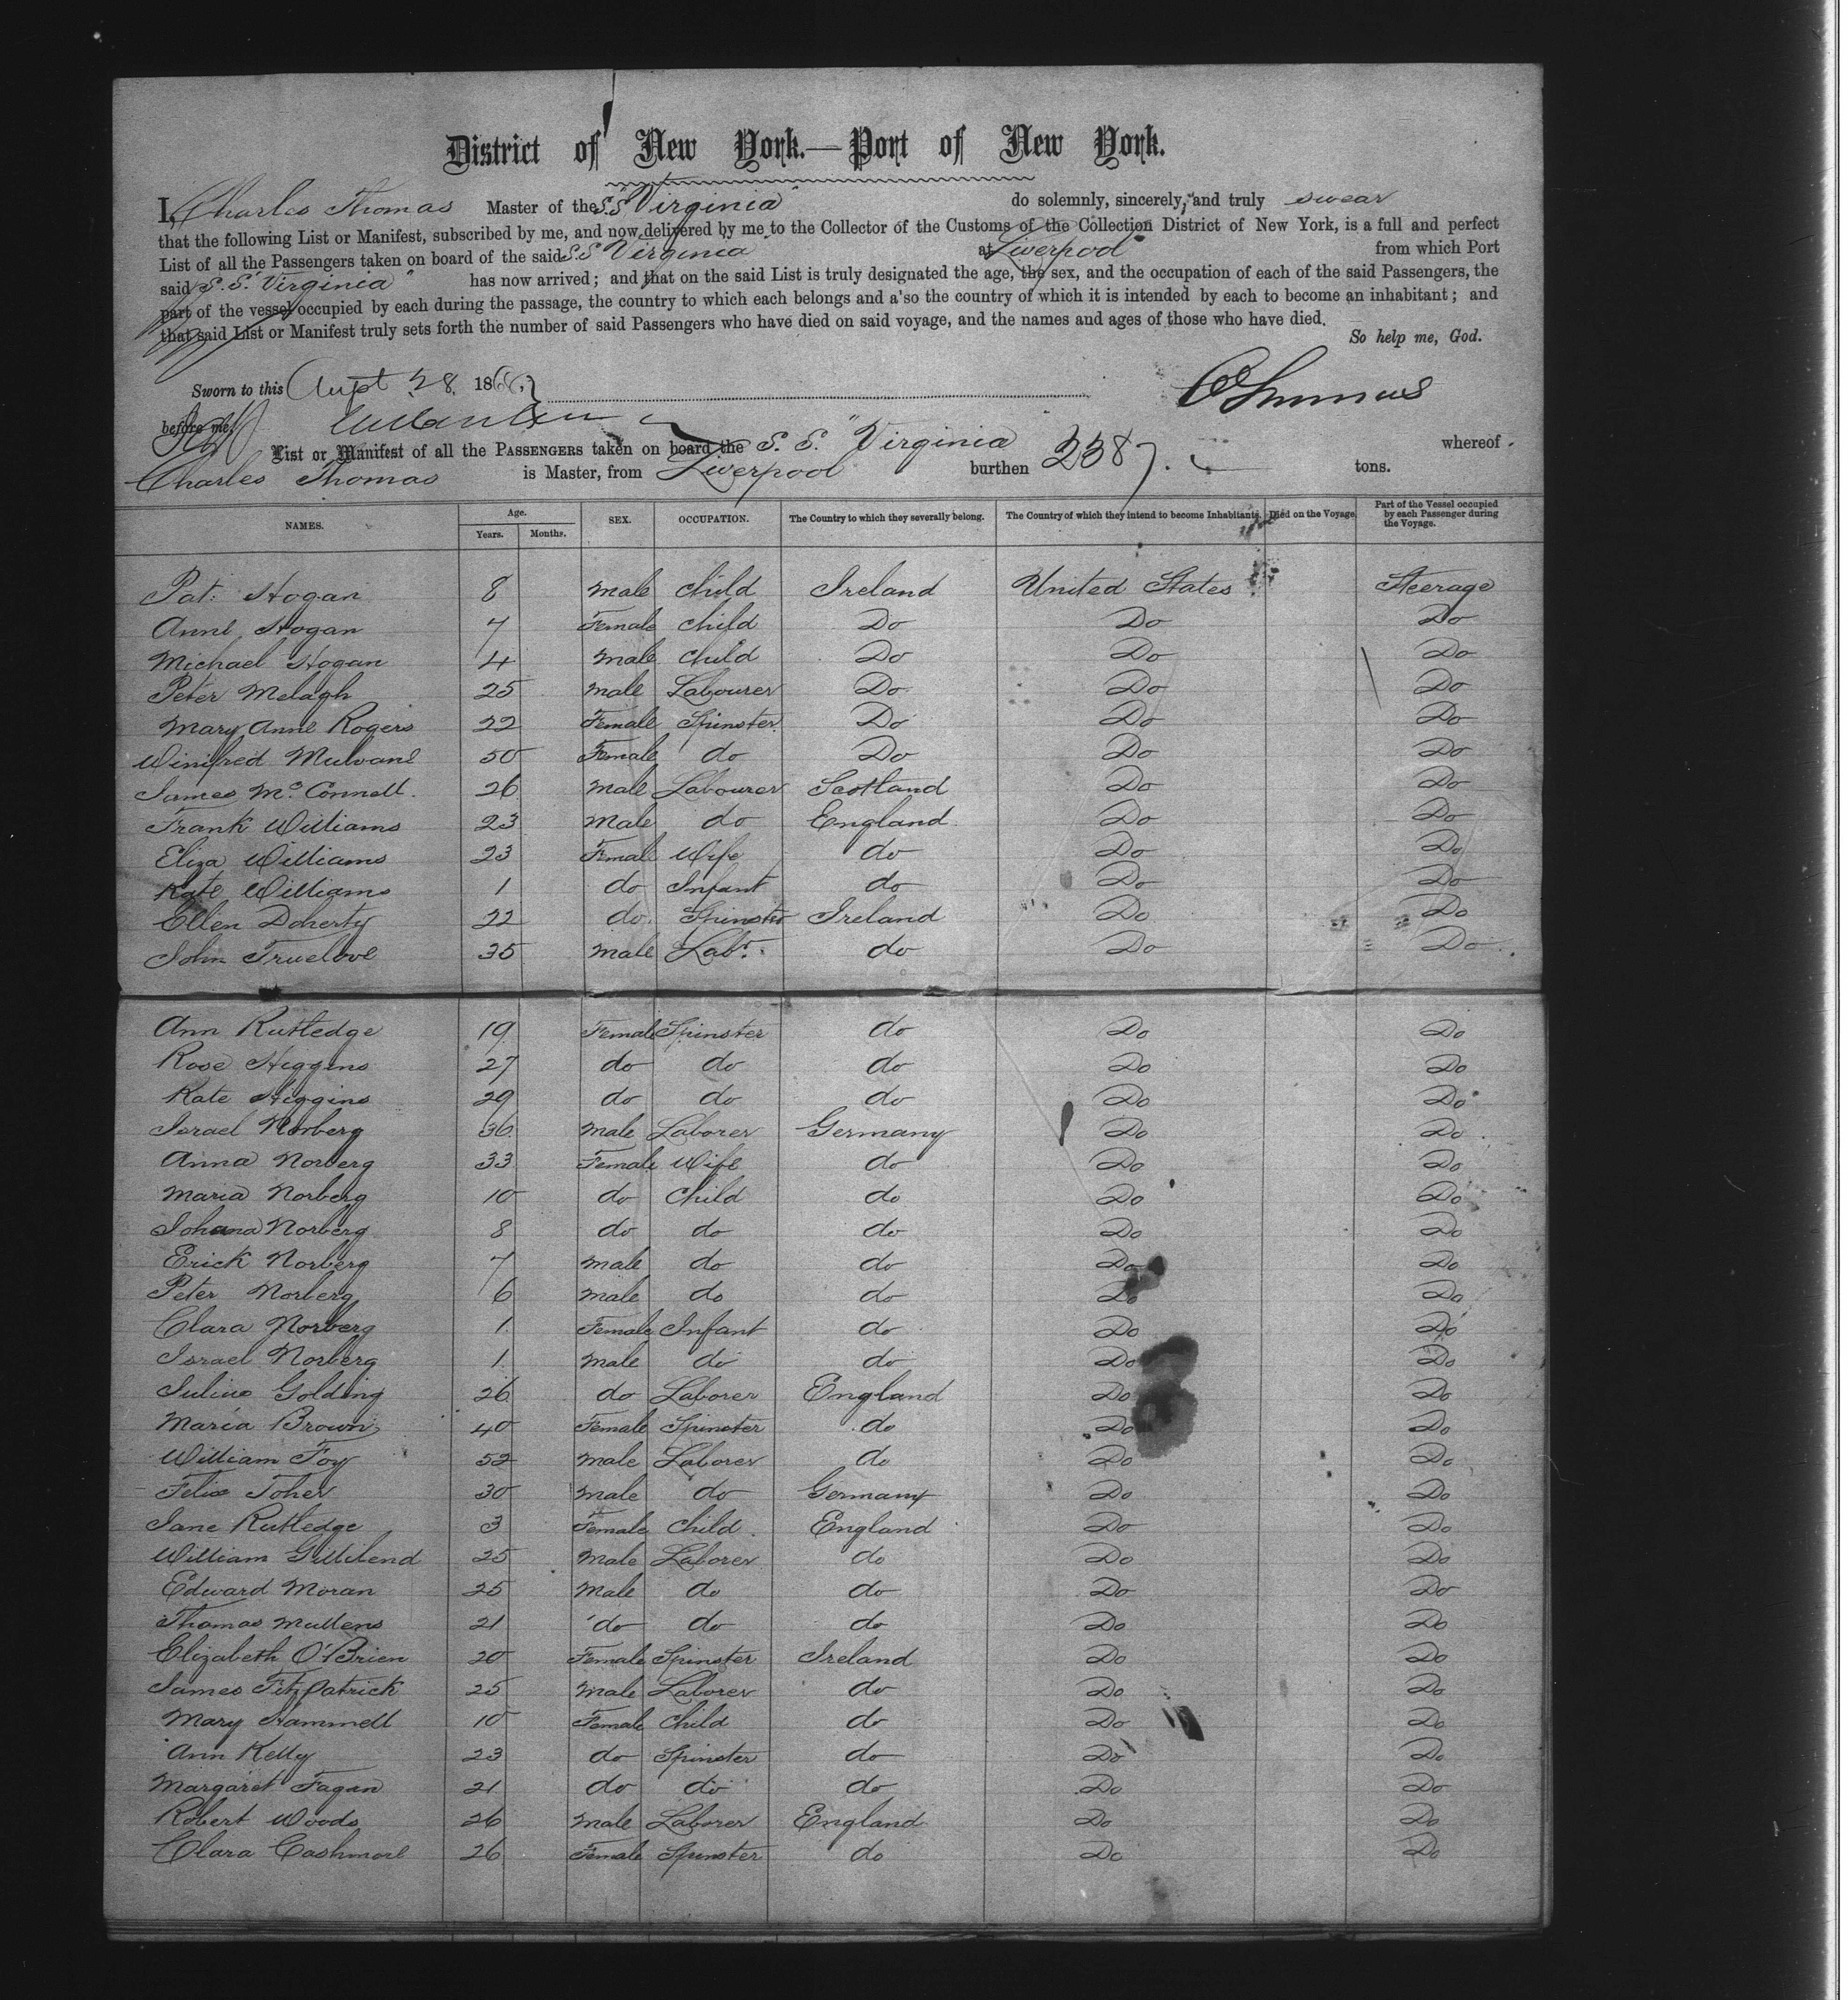 District of New York.—Port of New York.
I, Charles Thomas Master of the S.S. "Virginia" do solemnly, sincerely, and truly swear
that the following List or Manifest, subscribed by me, and now delivered by me to the Collector of the Customs of the Collection District of New York, is a full and perfect
List of all the Passengers taken on board of the said S.S. Virginia at Liverpool from which Port
said S.S. "Virginia" has now arrived; and that on the said List is truly designated the age, the sex, and the occupation of each of the said Passengers, the
part of the vessel occupied by each during the passage, the country to which each belongs and a'so the country of which it is intended by each to become an inhabitant; and
that said List or Manifest truly sets forth the number of said Passengers who have died on said voyage, and the names and ages of those who have died.
So help me, God.
Sworn to this 28. 186
before me,
List or Manifest of all the PASSENGERS taken on board the S. S. "Virginia whereof
Charles Thomas is Master, from Liverpool burthen tons.
NAMES. Age. Years. Months. SEX. OCCUPATION. The Country to which they severally belong. The Country of which they intend to become Inhabitants. Died on the Voyage. Part of the Vessel occupied by each Passenger during the Voyage.
Pat: Hogan 8 Male Child Ireland United States Steerage
Anne Hogan 7 Female Child Do Do Do
Michael Hogan 4 Male Child Do Do Do
Peter Melagh 25 Male Labourer Do Do Do
Mary Anne Rogers 22 Female Spinster Do Do Do
Winifred Mulvane 50 Female do Do Do Do
James McConnell. 26 Male Labourer Scotland Do Do
Frank Williams 23 Male do England Do Do
Eliza Williams 23 Female Wife do Do Do
Kate Williams 1 do Infant do Do Do
Ellen Doherty 22 do Spinster Ireland Do Do
John Truelove 35 Male Labr. do Do Do
Ann Rutledge 19 Female Spinster do Do Do
Rose Higgins 27 do do do Do Do
Kate Higgins 29 do do do Do Do
Israel Norberg 36 Male Laborer Germany Do Do
Anna Norberg 33 Female Wife do Do Do
Maria Norberg 10 do Child do Do Do
Johana Norberg 8 do do do Do Do
Erick Norberg 7 Male do do Do Do
Peter Norberg 6 Male do do Do Do
Clara Norberg 1 Female Infant do Do Do
Israel Norberg 1 Male do do Do Do
Julius Golding 26 do Laborer England Do Do
Maria Brown 40 Female Spinster do Do Do
William Foy 52 Male Laborer do Do Do
Felix Toher 30 Male do Germany Do Do
Jane Rutledge 3 Female Child England Do Do
William Gillilend 25 Male Laborer do Do Do
Edward Moran 25 Male do do Do Do
Thomas Mullens 21 do do do Do Do
Elizabeth O'Brien 20 Female Spinster Ireland Do Do
James Fitzpatrick 25 Male Laborer do Do Do
Mary Hammell 10 Female Child do Do Do
Ann Kelly 23 do Spinster do Do Do
Margaret Fagan 21 do do do Do Do
Robert Woods 26 Male Laborer England Do Do
Clara Cashmore 26 Female Spinster do Do Do